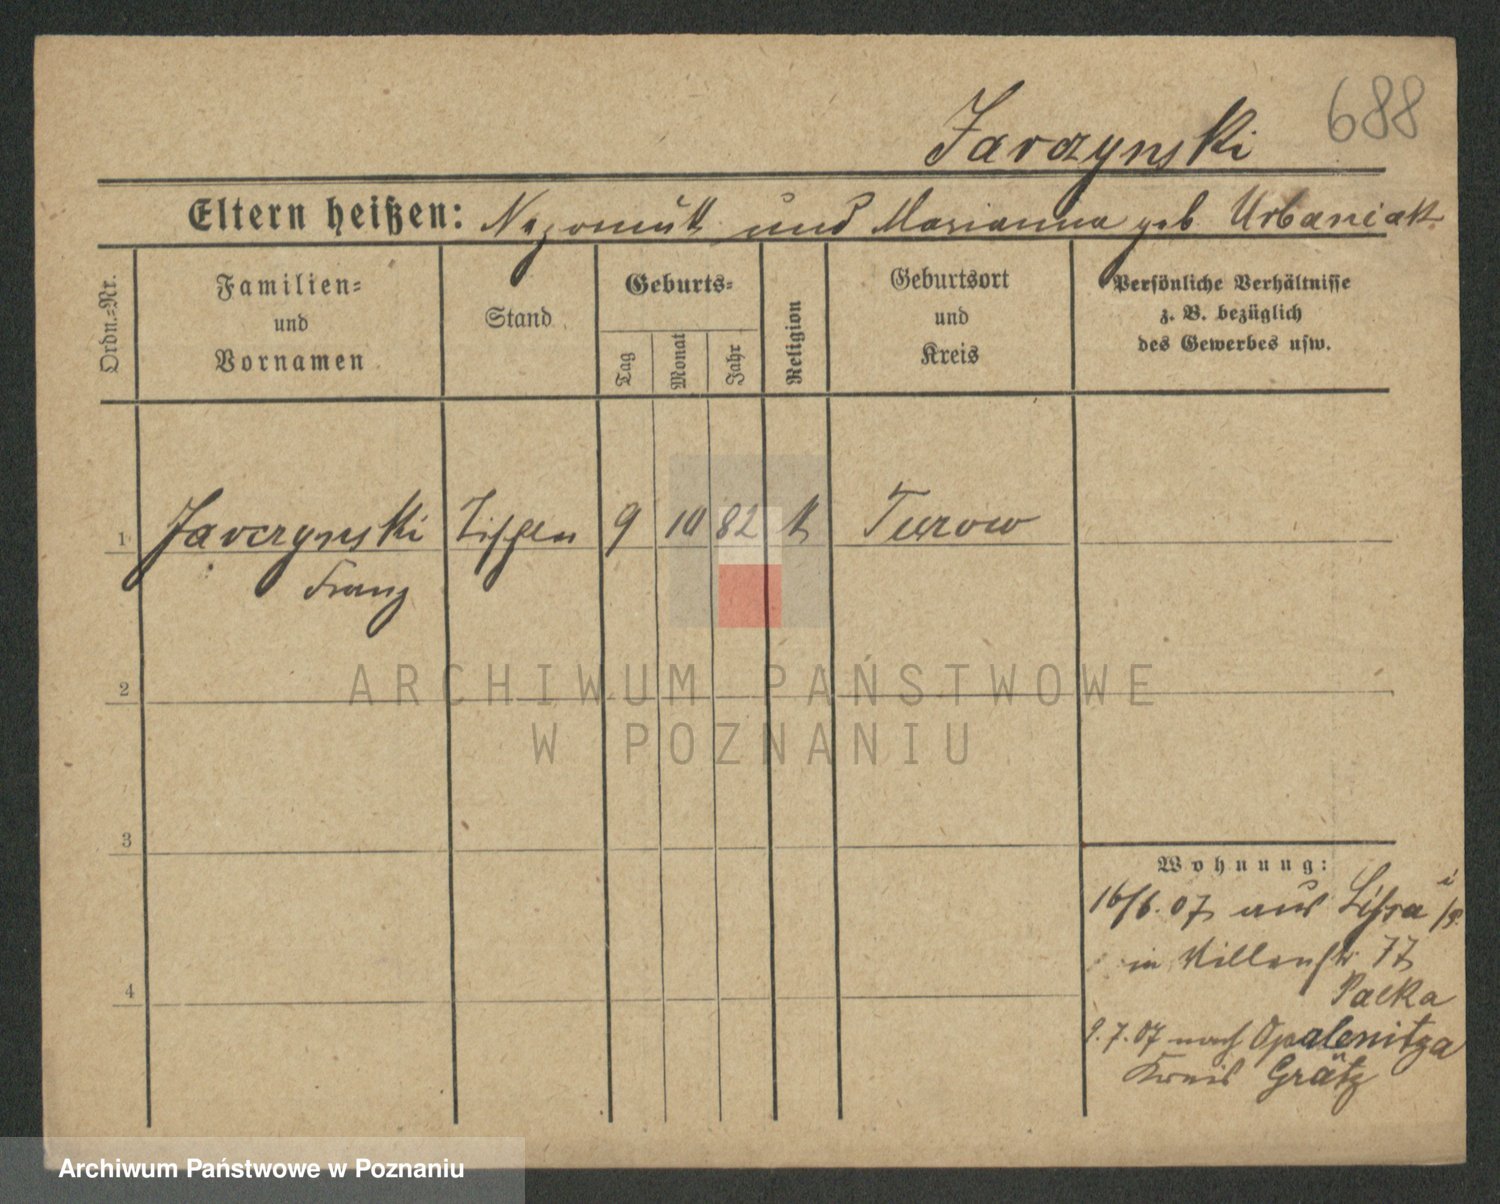 688
Jarczynski
Eltern heißen: Nepomuk und Marianna geb Urbaniak
Ordn.=Nr.
Familien=
und
Vornamen
Stand
Geburts=
Tag
Monat
Jahr
Religion
Geburtsort
und
Kreis
Persönliche Verhältnisse
z. B. bezüglich
des Gewerbes usw.
1 Jarczynski Tischler 9 10 82 k Turow
Franz
2
3
4
Wohnung:
16/6.07 aus Lissa i/P.
in 77
Packa
9.7.07 nach Opalenitza
Kreis Grätz
ARCHIWUM PAŃSTWOWE
W POZNANIU
Archiwum Państwowe w Poznaniu